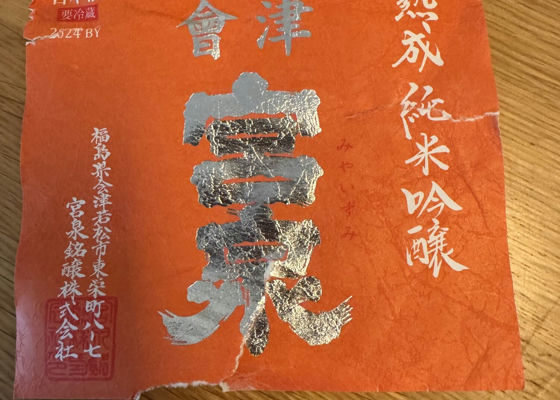 熟成純米吟醸
會津
宮泉
みやいずみ
要冷蔵
2024BY
福島県会津若松市東栄町八-七
宮泉銘醸株式会社